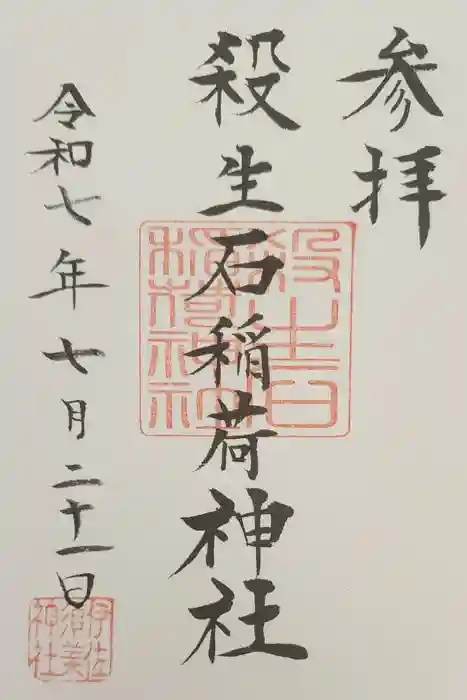 参拝
殺生石稲荷神社
令和七年七月二十一日
殺生石
稲荷神社
伊佐
須美
神社